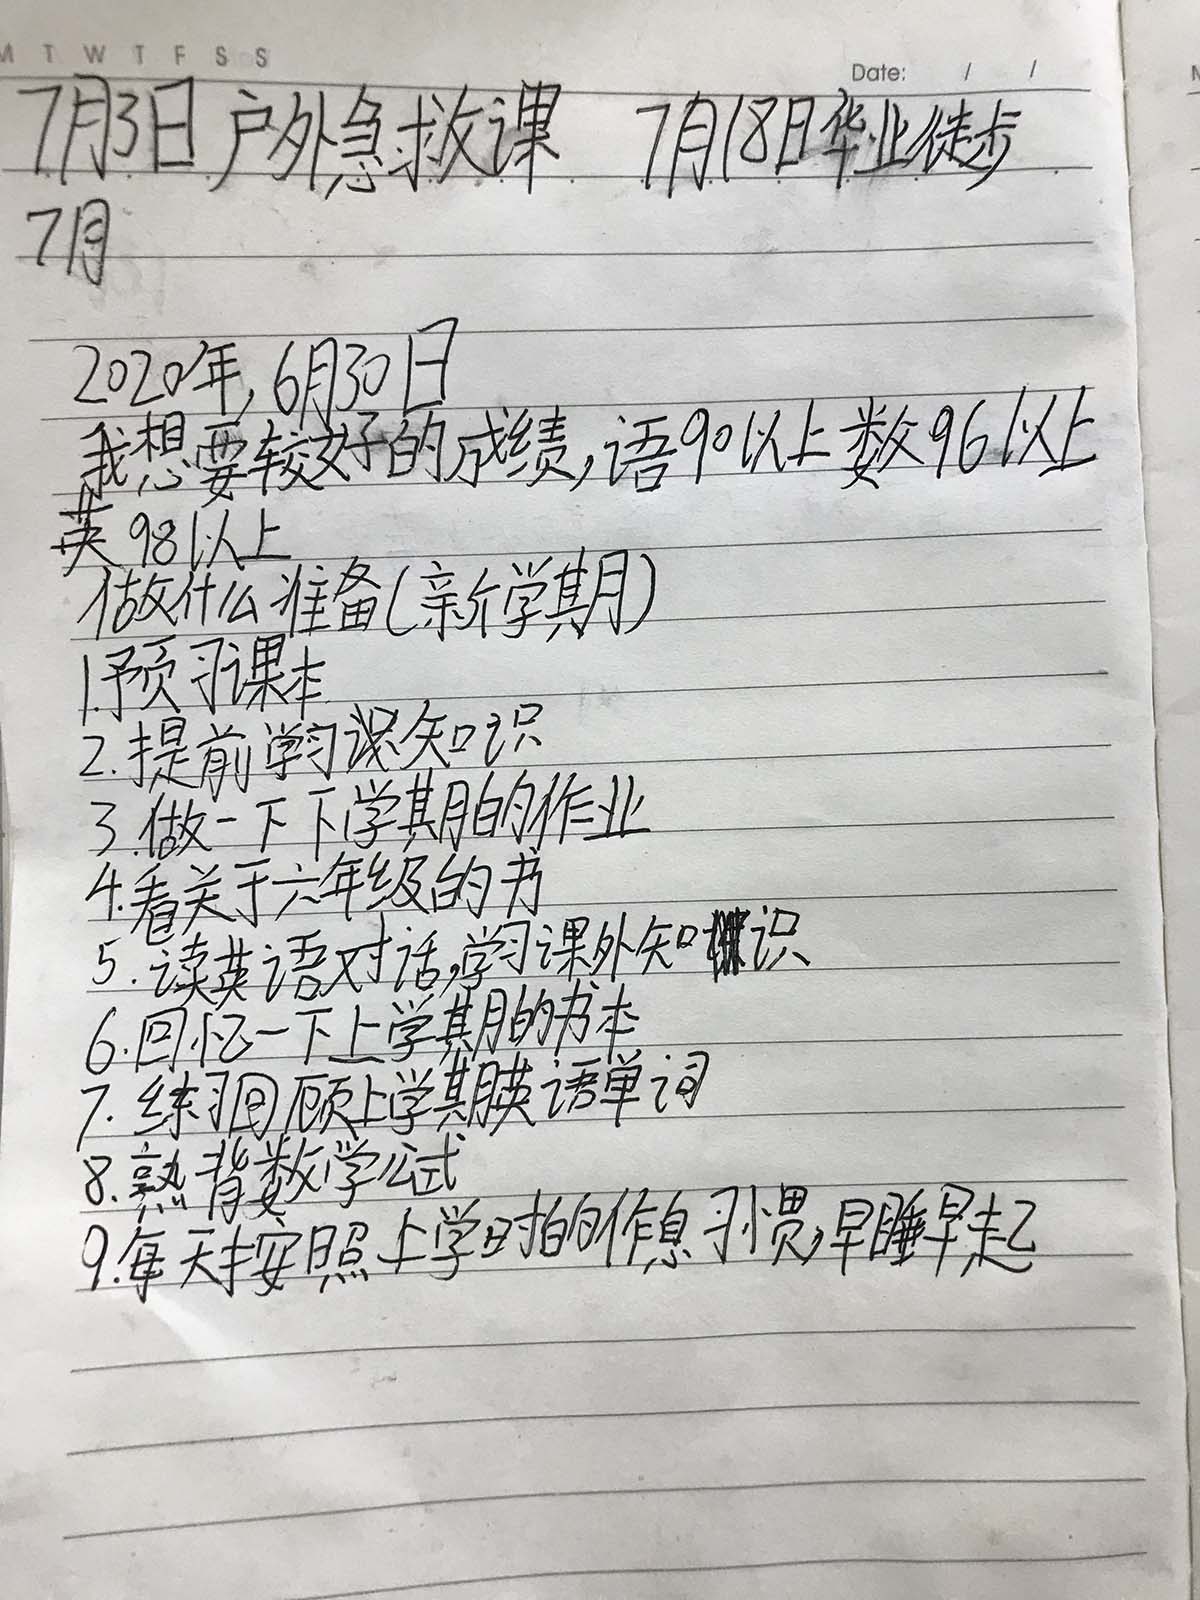 M T W T F S S
Date: / /
7月3日户外急救课 7月18日华业徒步
7月
2020年,6月30日
我想要较好的成绩,语90以上数96以上
英98以上
做什么准备(新学期月)
1.预习课本
2.提前学习课知识
3.做一下下学期的作业
4.看关于六年级的书
5.读英语对话,学习课外知识
6.回忆一下上学期的书本
7.练习回顾上学期英语单词
8.熟背数学公式
9.每天按照上学时的作息习惯,早睡早起